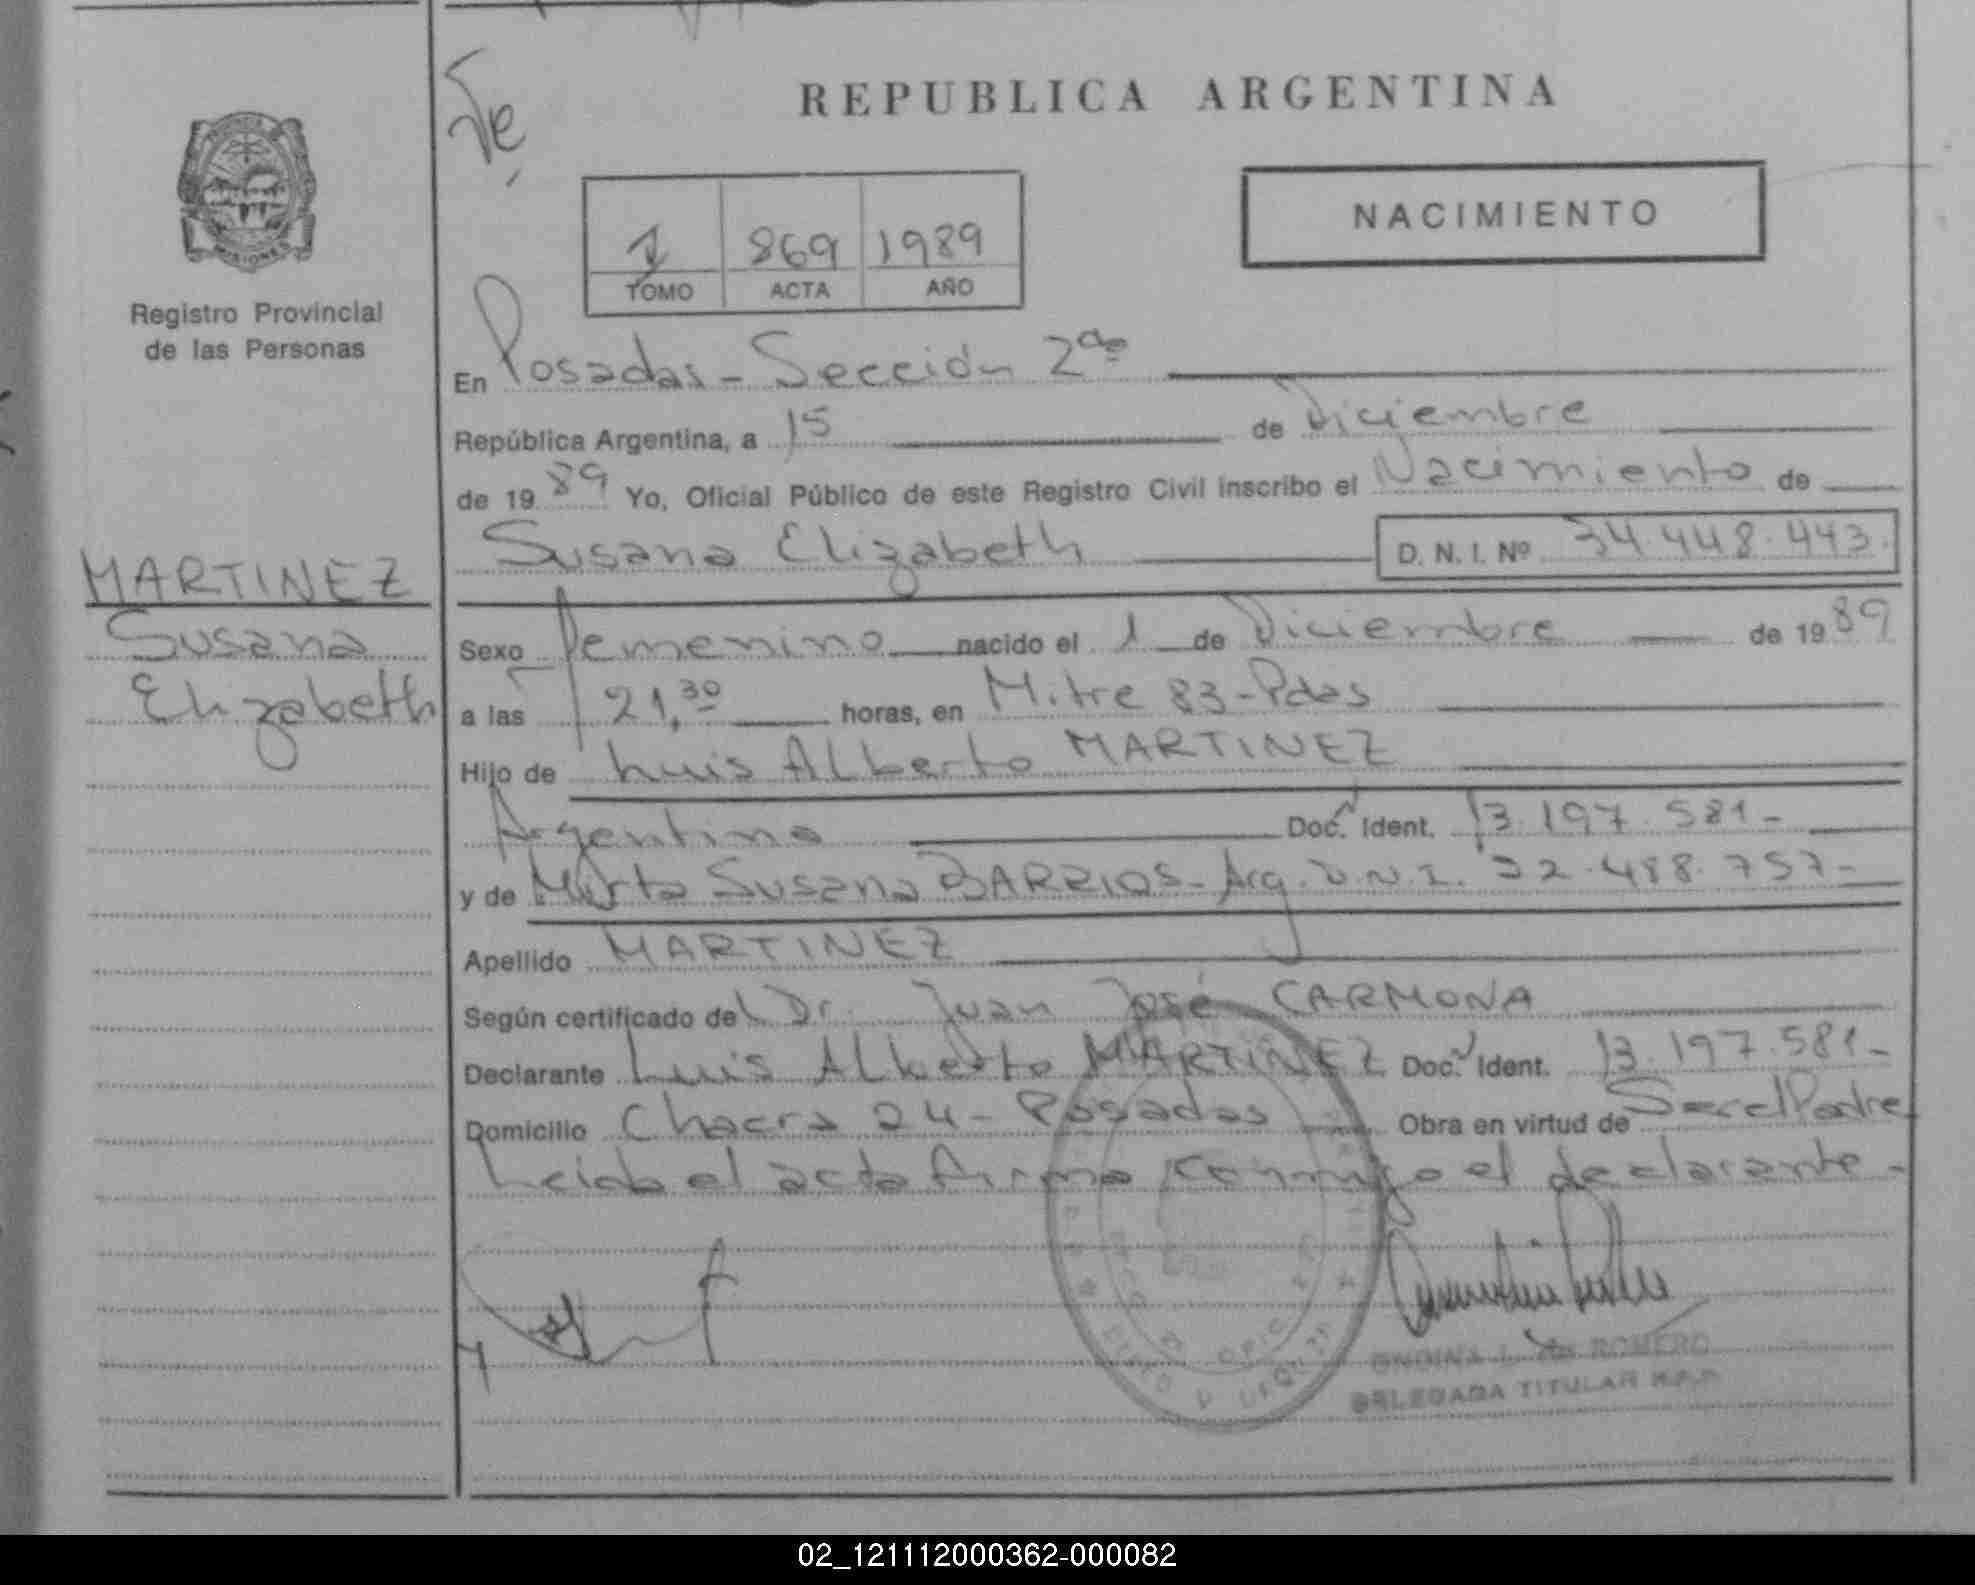 REPUBLICA ARGENTINA
NACIMIENTO
1 869 1989
TOMO ACTA AÑO
PROVINCIA
MISIONES
Registro Provincial
de las Personas
MARTINEZ
Susana
Elizabeth
En Posadas - Sección 2da
República Argentina, a 15 de Diciembre
de 1989 Yo, Oficial Público de este Registro Civil inscribo el Nacimiento de
Susana Elizabeth D. N. I. Nº 34.448.443.
Sexo Femenino nacido el 1 de Diciembre de 1989
a las 21,30 horas, en Mitre 83 - Pdas
Hijo de Luis Alberto MARTINEZ
Argentino Doc. Ident. 13.197.581 -
y de Mirta Susana BARRIOS - Arg. D.N.I. 22.488.757 -
Apellido MARTINEZ
Según certificado del Dr. Juan José CARMONA
Declarante Luis Alberto MARTINEZ Doc. Ident. 13.197.581 -
Domicilio Chacra 24 - Posadas Obra en virtud de Ser el Padre
Leida el acta firma conmigo el declarante -
ROMERO
DELEGADA TITULAR R.P.P.
02_121112000362-000082